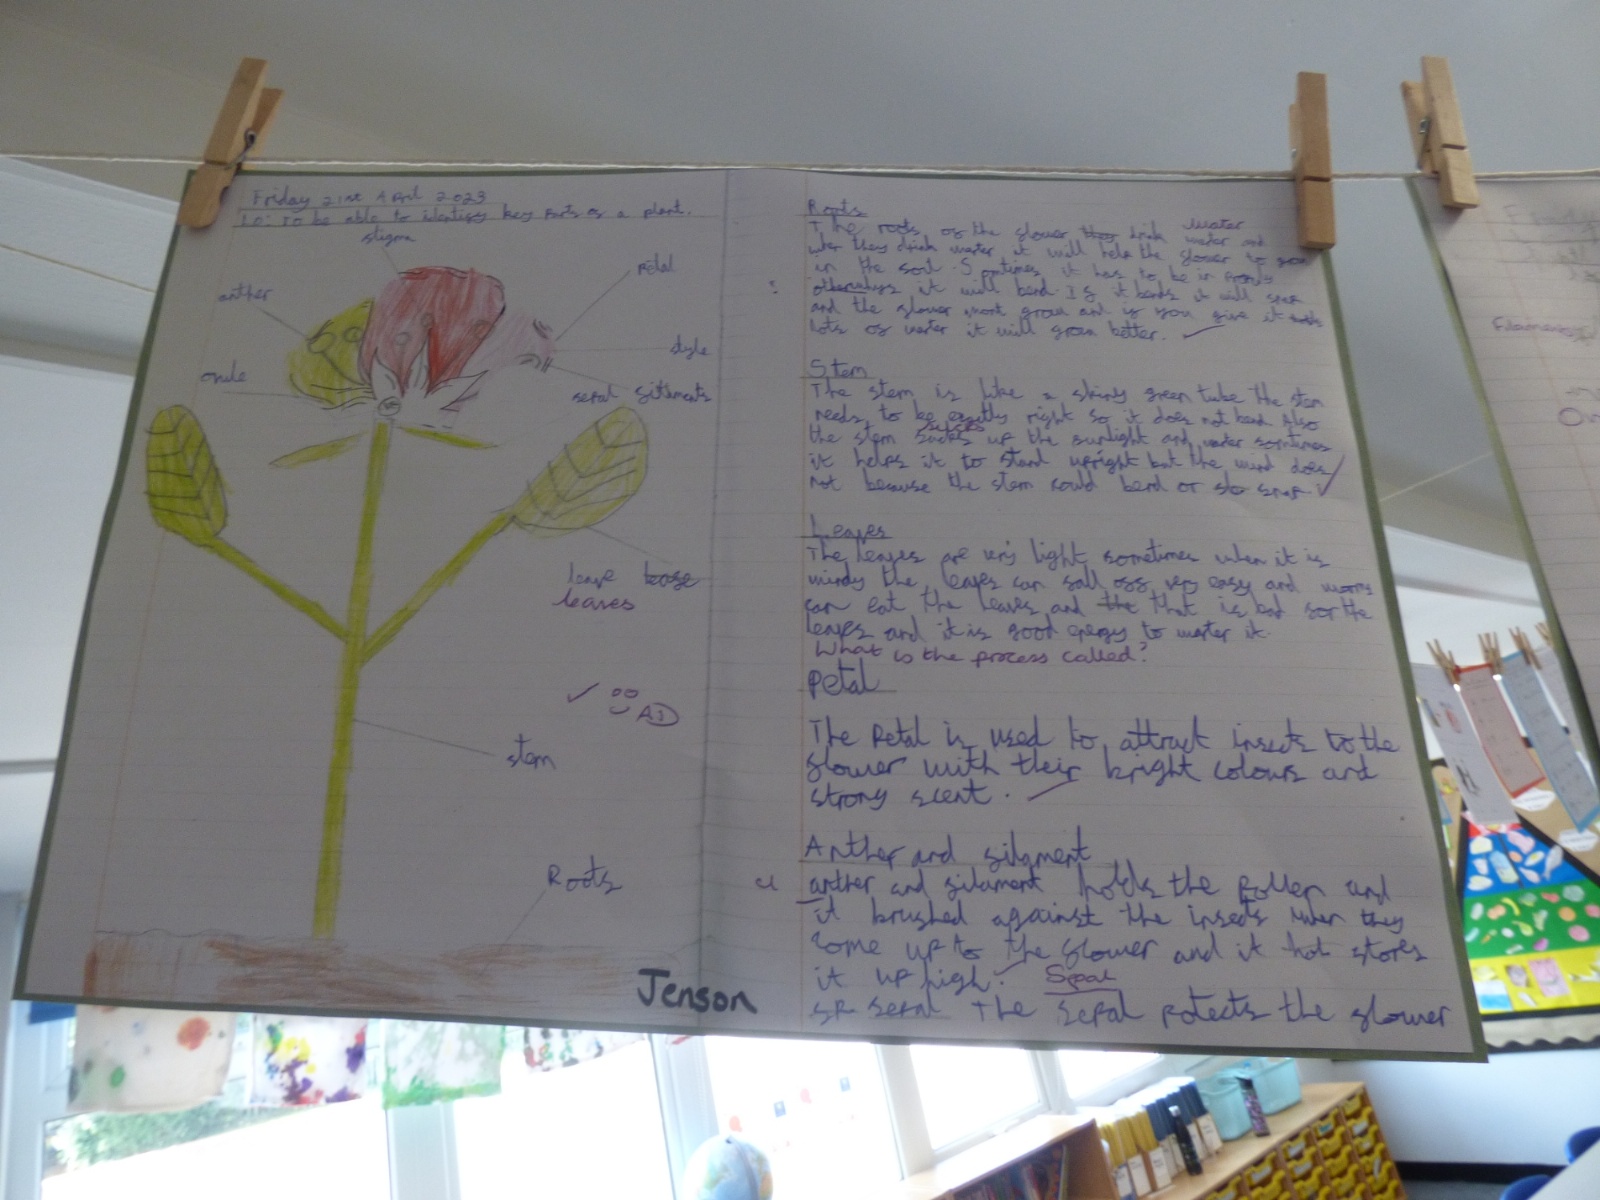 Friday 21st April 2023
LO: To be able to identisy key parts os a plant.
stigma
petal
anther
style
ovule
sepal siliments
leave
leaves
stem
AJ
Roots
Jenson
Roots
The roots os the slower they drink water and
wen they drink water it will help the slower to grow
in the soil. Somtimes it has to be in
it will bend. Is it bends it will snap
and the slower wont grow and is you give it
lots os water it will grow better.
Stem
The stem is like a shiny green tube the stem
needs to be exactly right so it does not bend Also
the stem sucks up the sunlight and water somtimes
it helps it to stand upright but the wind does
not because the stem could bend or snap
Leaves
The leaves are very light sometimes when it is
windy the leaves can sall oss very easy and worms
can eat the leaves and the that is bad sor the
leaves and it is good energy to water it.
What is the process called?
Petal
The Petal is used to attract insects to the
slower with their bright colours and
strong scent.
Anther and siligment
anther and silament holds the pollen and
it brushed against the insects when they
come up to the slower and it hot stors
it up high.
Sepal
sepal The Sepal potects the slower
Filament